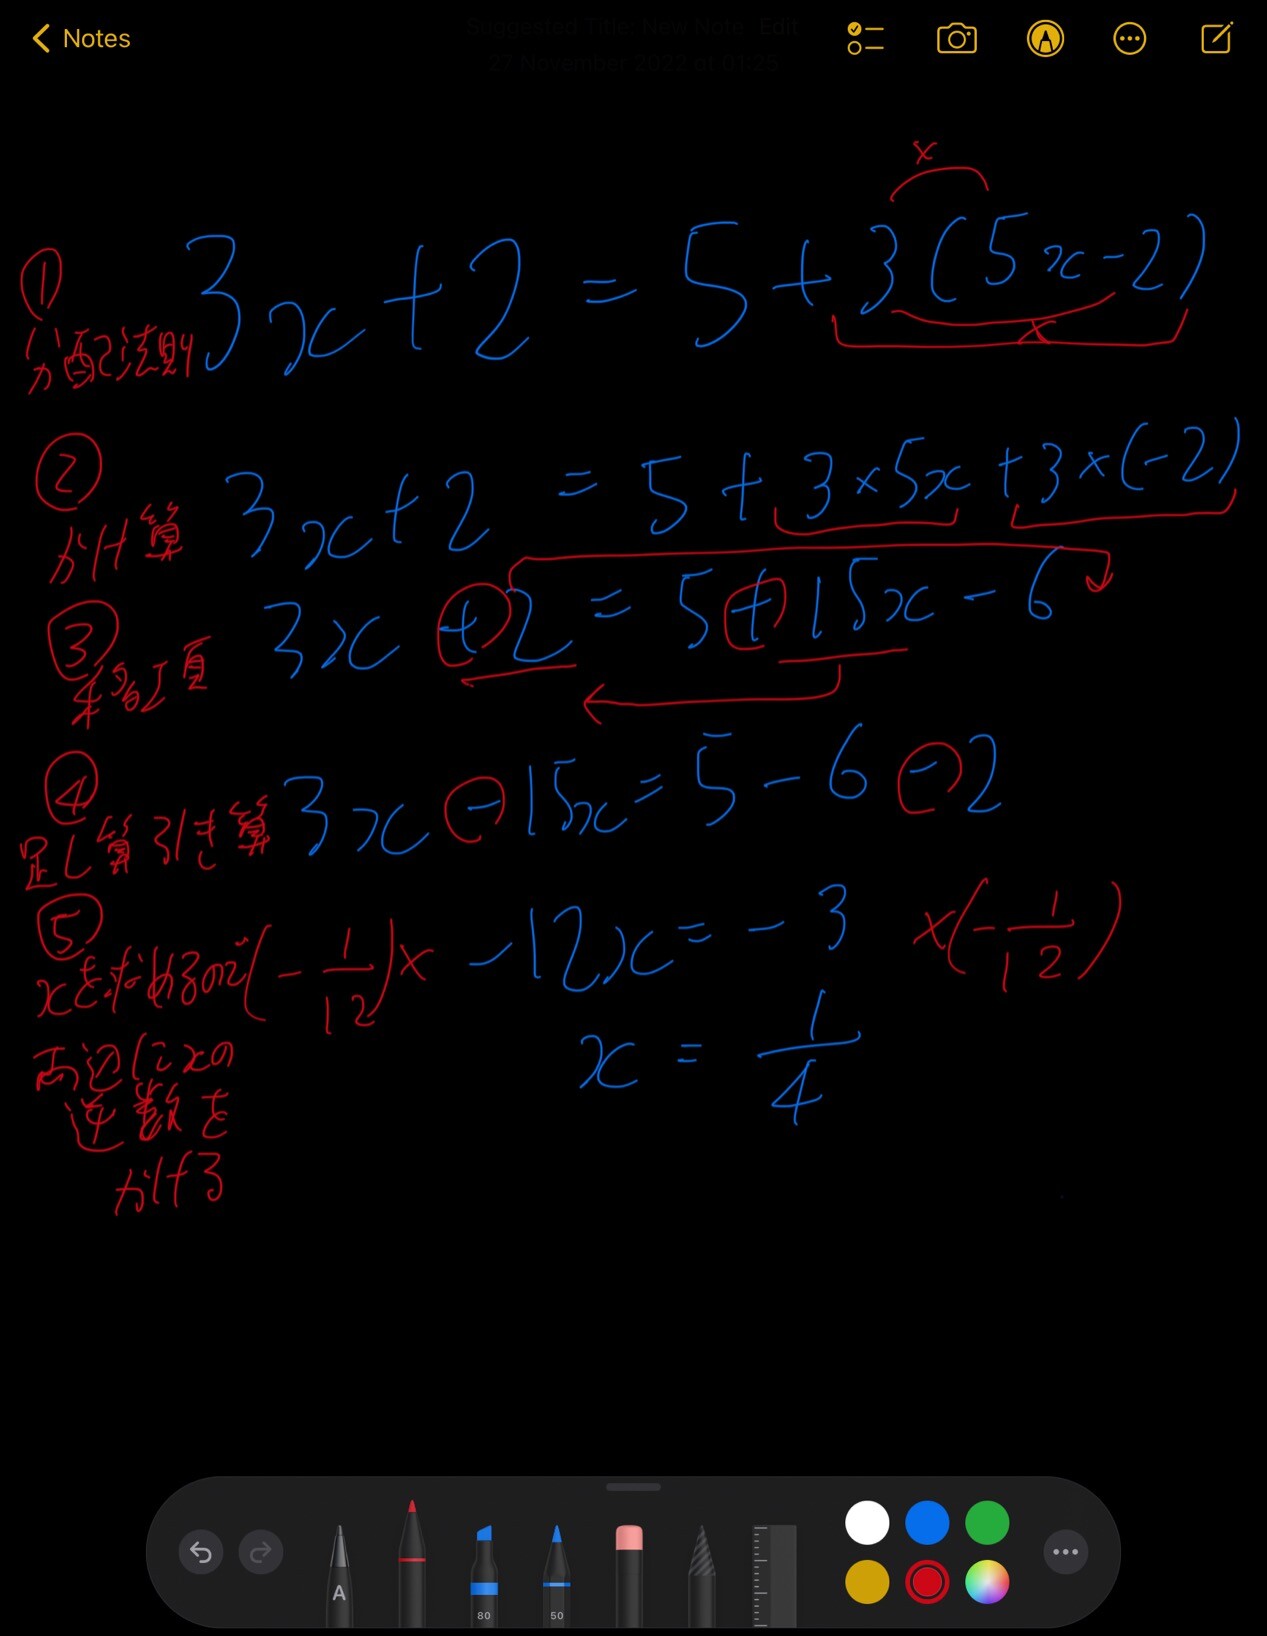 Notes
Suggested Title: New Note Edit
27 November 2022 at 01:25
x
① 3x+2=5+3(5x-2)
x
分配法則
② 3x+2=5+3×5x+3×(-2)
かけ算
③ 3x+2=5+15x-6
移項
④ 3x-15x=5-6-2
足し算引き算
⑤ (-1/12)× -12x=-3 ×(-1/12)
xを求めるので
x=1/4
両辺にxの
逆数を
かける
A
80
50